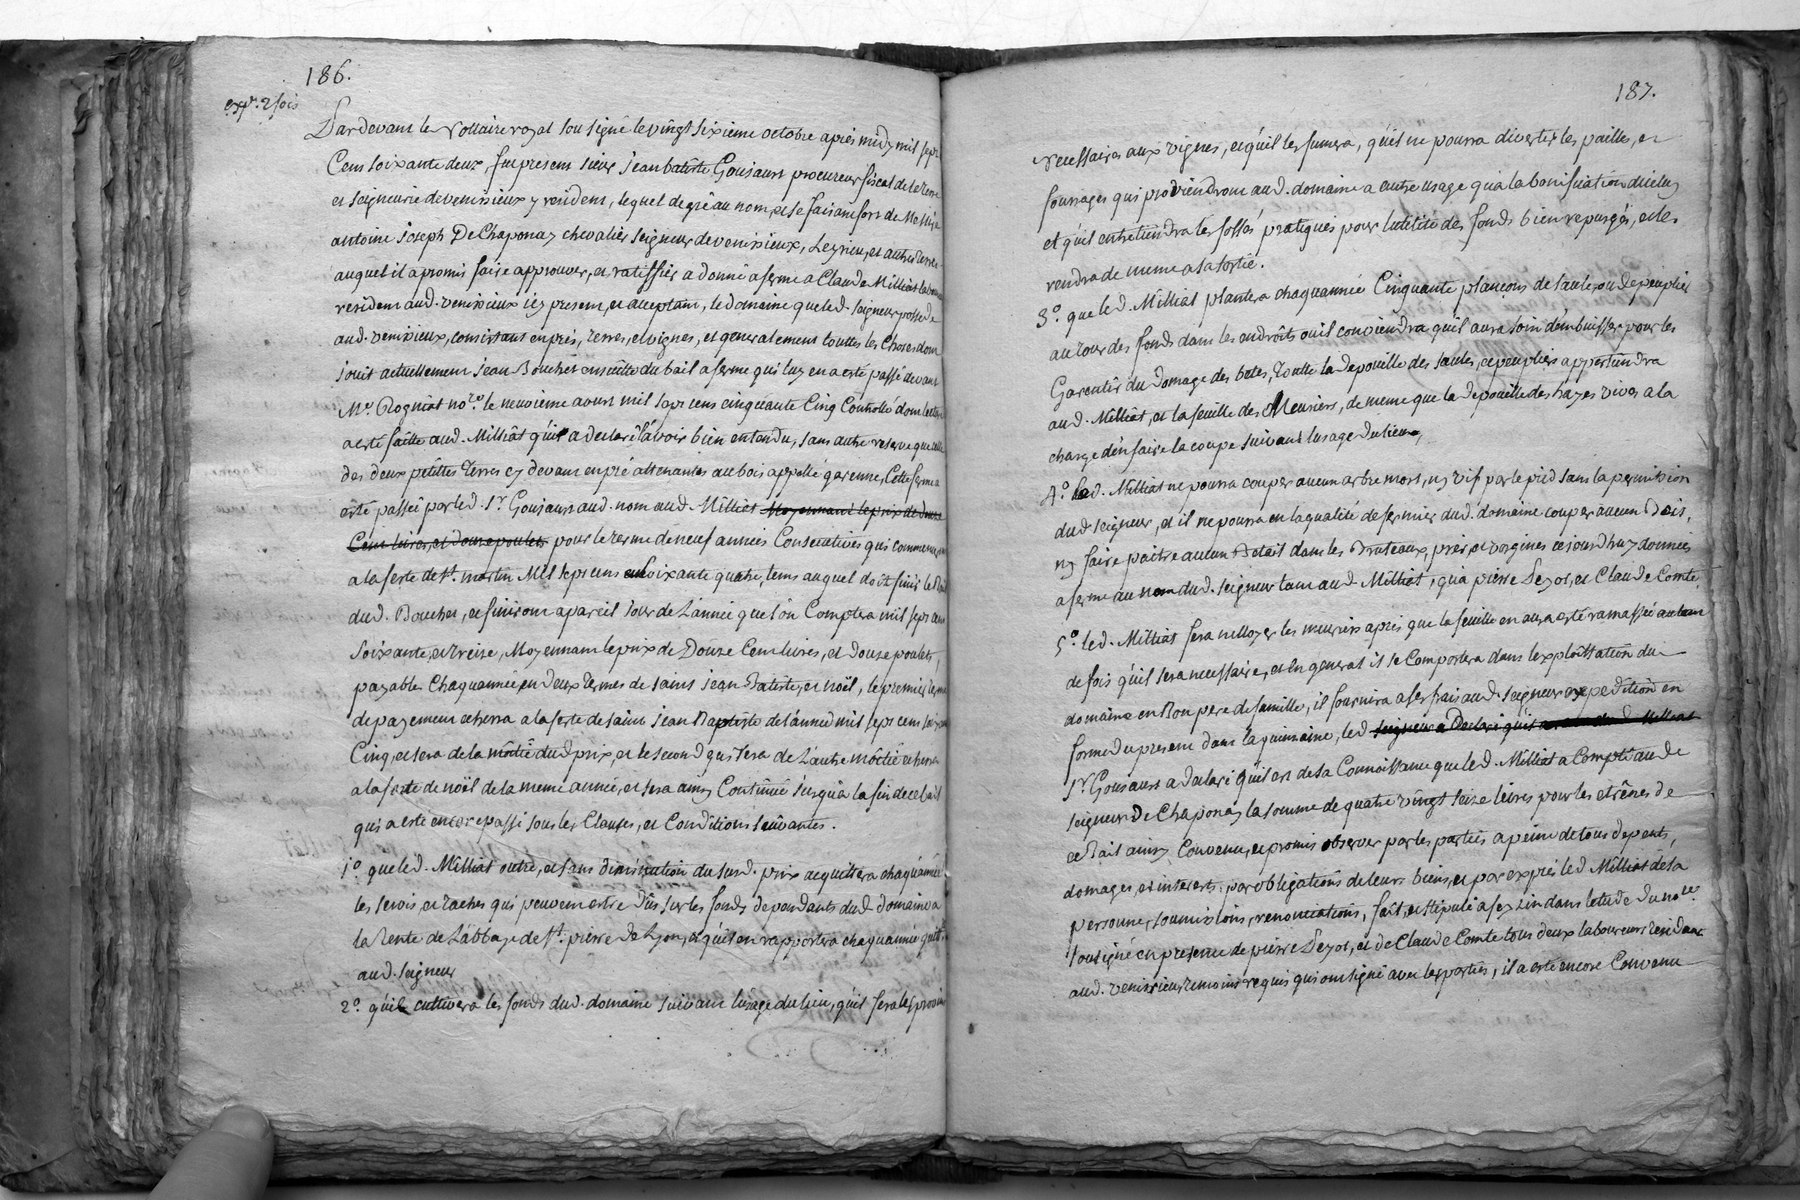 186.
exp. 2 fois
Pardevant le Nottaire royal sousigné le vingt sixieme octobre après midy mil sept
Cens soixante deux, fut present sieur jean batiste Goujaurt procureur fiscal de la terre
et seigneurie de venissieux y resident, lequel de gré au nom, et se faisant fort de Messire
antoine joseph De Chaponay chevalier seigneur de venissieux, Leyrieu, et autres terres
auquel il a promis faire approuver, et ratiffier a donné a ferme a Claude Milliat
resident aud. venissieux icy present, et acceptant, le domaine que led. seigneur possede
aud. venissieux, consistant en prés, terres, et vignes, et generalement touttes les choses dont
jouit actuellement jean Bouchet ensuitte du bail a ferme qui luy en a esté passé devant
Me. Rogniat nore. le neuvieme aoust mil sept cens cinquante Cinq Controllé dont lecture
a esté faitte aud. Milliat qu'il a declaré l'avoir bien entendu, sans autre reserve que celle
des deux petittes terres cy devant en pré attenantes au bois appellé garenne, Cette ferme a
esté passée par led. Sr. Goujaurt aud. nom aud. Milliat Moyennant le prix de douze
Cent livres, et douze poulets pour le terme de neuf années Consecutives qui commenceront
a la feste de St. martin Mil sept cens soixante quatre, tems auquel doit finir le Bail
dud. Bouchet, et finiront a pareil jour de L'année que l'on Comptera mil sept cens
Soixante, et treize, Moyennant le prix de Douze Cent livres, et douze poulets,
payable Chaquannée en deux termes de saint jean Batiste, et noël, le premier terme
de payement echerra a la feste de saint jean Baptiste de l'année mil sept cens soixante
Cinq, et sera de la moitié dud. prix, et le second qui sera de L'autre moitié echerra
a la feste de noël de la meme année, et sera ainsy Continué jusqu'a la fin de ce bail
qui a esté encore passé sous les Clauses, et Conditions suivantes.
1º. que led. Milliat outre, et sans diminution du susd. prix acquittera chaquannée
les servis, et taches qui peuvent estre dûs sur les fonds dependants dud. domaine a
la Rente de L'abbaye de St. pierre de Lyon, et qu'il en rapportera chaquannée quitt.
aud. seigneur
2º. qu'il cultivera les fonds dud. domaine suivant l'usage du lieu, qu'il fera les provins
187.
necessaires aux vignes, et qu'il les fumera, qu'il ne pourra divertir les paille, et
fourrages qui proviendront aud. domaine a autre usage qu'a la bonification d'iceluy
et qu'il entretiendra les fossés pratiqués pour l'utilité des fonds bien repurgés, et les
rendra de meme a sa sortie.
3º. que led. Milliat plantera chaquannée Cinquante plançons de saule, ou de peuplier
autour des fonds dans les endroits ou il conviendra qu'il aura soin d'embuisser pour les
Garentir du domage des betes, Toutte la depouille des saules, et peupliers appartiendra
aud. Milliat, et la feuille des Meuriers, de meme que la depouille des hayes vives a la
charge d'en faire la coupe suivant l'usage du lieu,
4º. led. Milliat ne pourra couper aucun arbre mort, ny vif par le pied sans la permission
dud. seigneur, et il ne pourra en la qualité de fermier dud. domaine couper aucun Bois,
ny faire paitre aucun Betail dans les Broteaux, prés, et vorgines ce jourd'huy donnés
a ferme au nom dud. seigneur tant aud. Milliat, qu'a pierre Leyot, et Claude Comte,
5º. led. Milliat fera nettoyer les meuriers après que la feuille en aura esté ramassée autant
de fois qu'il sera necessaire, et en general il se Comportera dans l'exploittation du
domaine en Bon pere de famille, il fournira a ses frais aud. seigneur expedition en
forme du present dans la quinzaine, led. seigneur a Declaré qu'il Milliat
Sr. Goujaurt a declaré qu'il est de sa Connoissance que led. Milliat a Compté aud.
seigneur De Chaponay la somme de quatre vingt seize livres pour les etrênes de
ce Bail ainsy Convenu, et promis observer par les parties a peine de tous depents,
domages, et interets, par obligations de leurs biens, et par exprés led. Milliat de sa
personne, soumissions, renonciations, fait, et stipulé a feyzin dans l'etude du nore.
sousigné en presence de pierre Leyot, et de Claude Comte tous deux laboureurs residans
aud. venissieux temoins requis qui ont signé avec les parties, il a esté encore Convenu